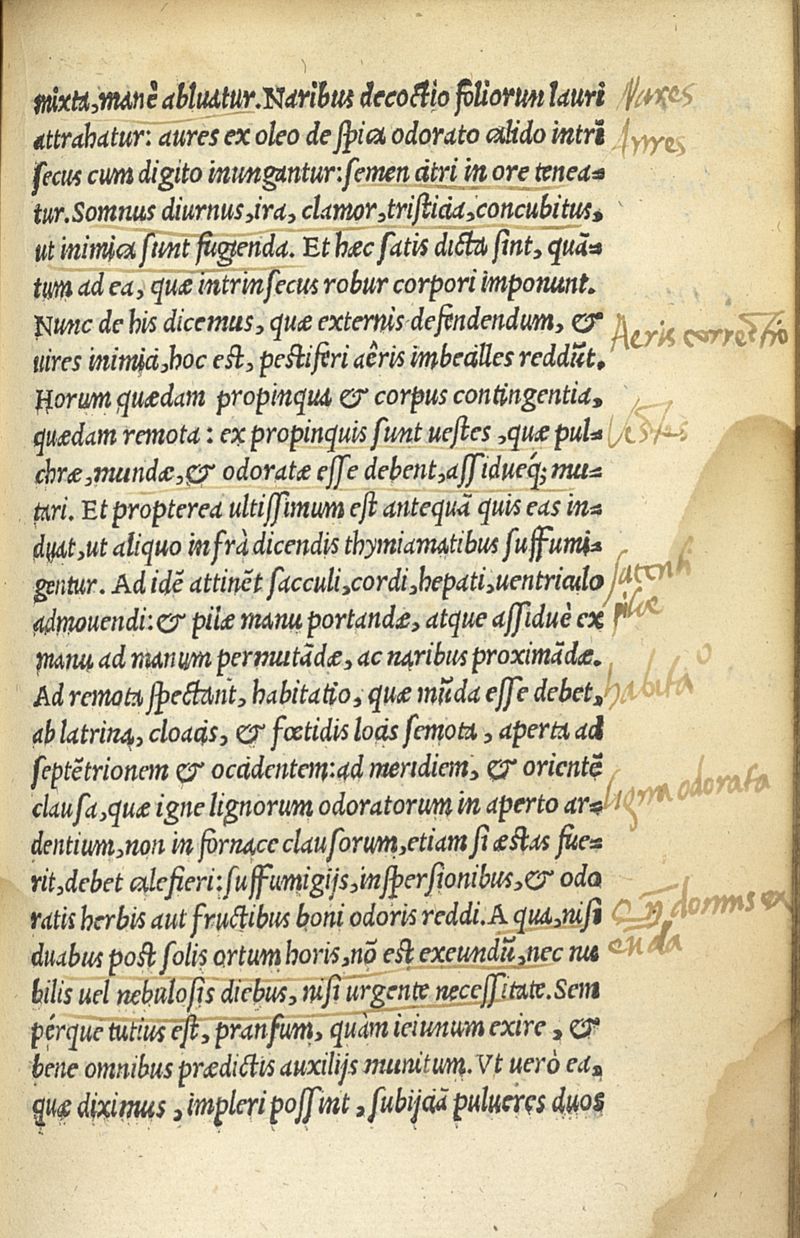 mixta, manè abluatur. Naribus decoctio foliorun lauri
Nares
attrahatur: aures ex oleo de spica odorato calido intrĩ
Aures
secus cum digito inungantur: semen citri in ore tenea-
tur. Somnus diurnus, ira, clamor, tristicia, concubitus,
ut inimica sunt fugienda. Et hæc satis dicta sint, quã-
tum ad ea, quæ intrinsecus robur corpori imponunt.
Nunc de his dicemus, quæ externis defendendum, &
Aeris correctio
uires inimici, hoc est, pestiferi aêris imbecilles reddũt.
Horum quædam propinqua & corpus contingentia,
quædam remota: ex propinquis sunt uestes, quæ pul-
Vestes
chræ, mundæ, & odoratæ esse debent, assidueq́; mu-
tari. Et propterea ultissimum est antequã quis eas in-
duat, ut aliquo infrà dicendis thymiamatibus suffumi-
gentur. Ad idẽ attinẽt sacculi, cordi, hepati, uentriculo
admouendi: & pilæ manu portandæ, atque assiduè ex
pilae
manu ad manum permutãdæ, ac naribus proximãdæ.
Ad remota spectant, habitatio, quæ mũda esse debet,
habitao
ab latrina, cloacis, & fœtidis locis semota, aperta ad
septẽtrionem & occidentem: ad meridiem, & orientẽ
clausa, quæ igne lignorum odoratorum in aperto ar-
ligna odorata
dentium, non in fornace clausorum, etiam si æstas fue-
rit, debet calefieri: suffumigijs, inspersionibus, & odo
ratis herbis aut fructibus boni odoris reddi. A qua, nisi
domus ex
duabus post solis ortum horis, nõ est exeundũ, nec nu
eũda
bilis uel nebulosis diebus, nisi urgente necessitate. Sem
pérque tutius est, pransum, quàm ieiunum exire, &
bene omnibus prædictis auxilijs munitum. Vt uerò ea,
quæ diximus, impleri possint, subijciã pulueres duos